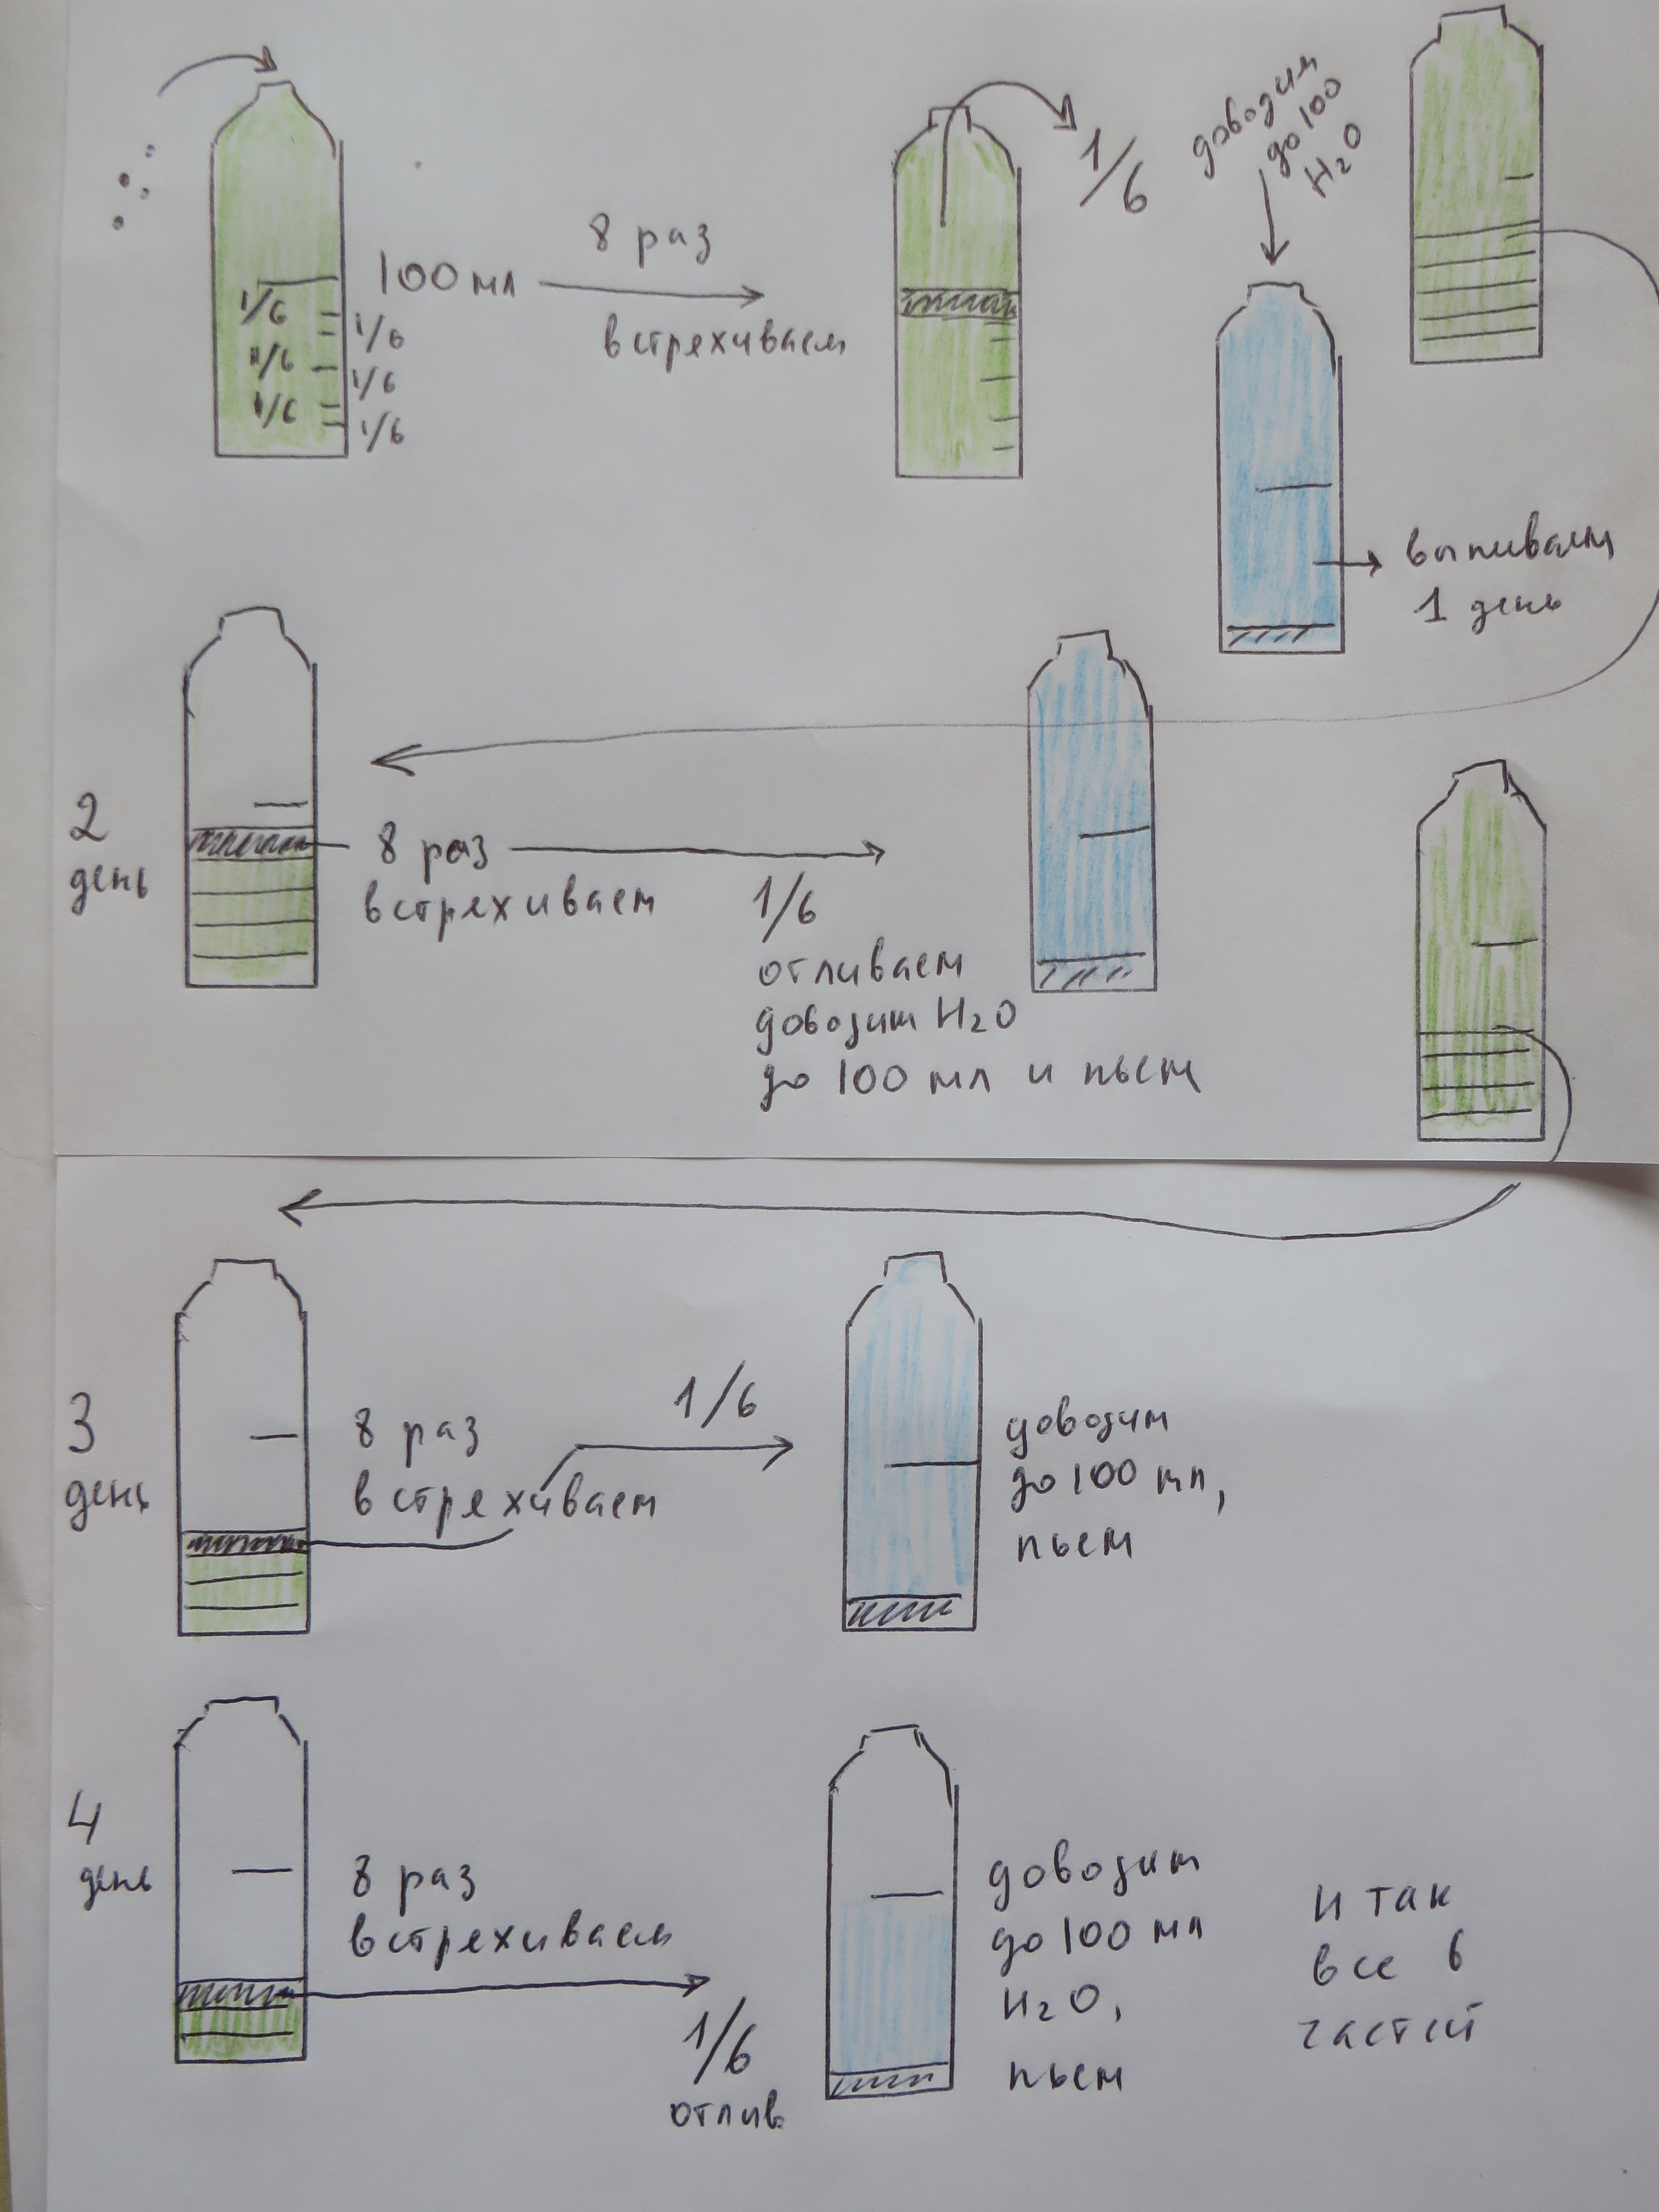 100 мл
1/6
1/6
1/6
1/6
1/6
1/6
8 раз
встрехиваем
1/6
доводим
до 100
H₂O
выпиваем
1 день
2
день
8 раз
встрехиваем
1/6
отливаем
доводим H₂O
до 100 мл и пьем
3
день
8 раз
встрехиваем
1/6
доводим
до 100 мл,
пьем
4
день
8 раз
встрехиваем
1/6
отлив
доводим
до 100 мл
H₂O,
пьем
и так
все 6
частей